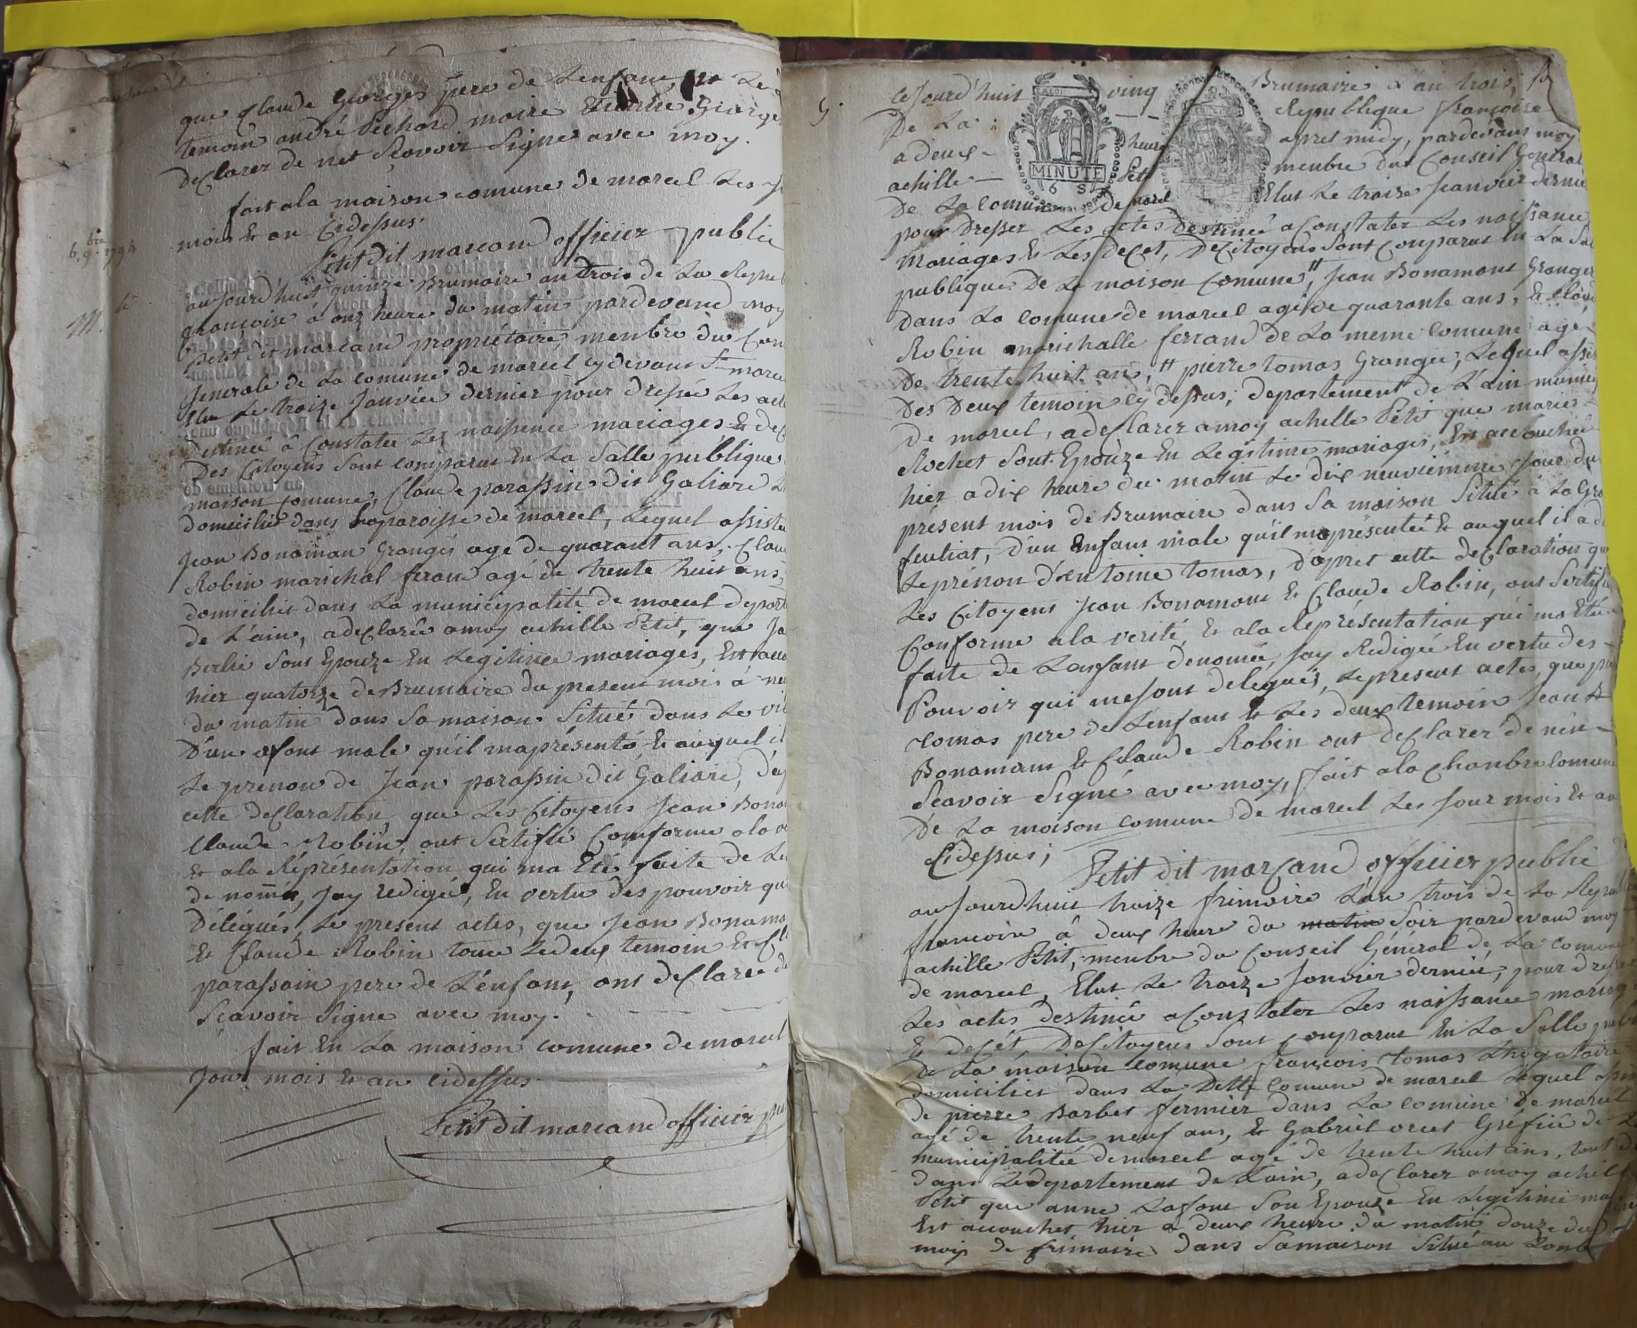 que Claude Georges pere de Lenfant Le
temoin andré Pechard maire Georges
declarez de net Scavoir Signe avec moy.
fait ala maison comune de marcel Les J
mois et an Cidessus.
Petit dit marcand officier public
aujourdhuit quinze Brumaire an trois de La Repub
françoise a onze heure du matin pardevand moy
petit dit marcand propriétaire menbre du Con
Jenerale de La comune de marcel cy devant St marce
Elu Le treize Janvier dernier pour dressée Les acte
Destinée à Constater Les naissence mariages & dec
Des Citoyens Sont comparut En La Salle publique
maison comune, Claude parassin dit Galiare
domiciliés dans La paroisse de marcel, Lequel assiste
Jean Bonaman Granges age de quarant ans, Clau
Robin marichal feran agé de trente huit ans
domiciliés dans La municipalité de marcel depart
de L'ain, a declarée amoy achille Petit, que Ja
Berlie Sont Epouze En Legitime mariages, Est acou
hier quatorze de Brumaire du present mois à neu
du matin dans Sa maison Situé dans Le vil
D'un afant male qu'il maprésenté & auquel il
Le prenon de Jean parassin dit Galiare, d'ap
cette declaration, que Les Citoyens Jean Bona
Claude Robin, ont Sertifié Conforme ala ve
& ala Réprésentation qui ma Eté faite de Le
de nomée, Jay redigé, En vertu des pouvoir qui
Délégués, Le present actes, que Jean Bonama
Et Claude Robin tout Ledeux temoin Et Cl
parassain pere de L'énfant, ont declarée de
Scavoir Signe avec moy.
fait En La maison comune de marcel
Jour mois & an cidessus.
Petit dit marcand officier pu
6. 9bre 1794
M.
9.
Cejourd'huit vinq Brumaire L'an trois,
De La République françoise
a deux heure apret midy, pardevant moy
achille Petit menbre du Conseil General
De La comune De marcel Elut Le treize Jeanvier dernie
MINUTE
6 S
pour Dresser Les actes destinée a Constater Les naissance
Mariages & Les décet, De Citoyens Sont Conparut En La Sal
publique De La maison Comune, Jean Bonamant Granger
Dans La comune de marcel agé de quarante ans, & Claud
Robin marichalle ferrand De La meme comune agé
De trente huit ans, pierre tomas Granger, Lequel assis
Des Deux temoin cy dessus, departement de L'ain munici
De marcel, a declarez amoy achille Petit que marie
Rochet Sont Epouze En Legitime mariages, Est accouchée
hier a dix heure du matin Le dix neuviémme Jour du
présent mois de Brumaire dans Sa maison Situé a La Gra
feuliat, d'un Enfant male qu'il maprésentée & auquel il a do
Le prénon d'entoine tomas, D'apret cette declaration que
Les Citoyens Jean Bonamant & Claude Robin, ont Sertifi
Conforme ala verité, & ala Représentation qui ma Etée
faite de Lanfant denomée, Jay Redigée En vertu des
Pouvoir qui mesont delegués, Le present actes, que pi
tomas pere de L'énfant & Les deux temoin Jean
Bonamant & Claude Robin ont declarez de net
Scavoir Signé avec moy, fait ala chanbre Comune
De La maison Comune de marcel Les Jour mois & an
Cidessus;
Petit dit marcand officier public
aujourdhuit treize frimaire L'an trois de La Repu
francoise à deux heure du matin Soir pardevand moy
achille Petit, menbre du Conseil Général de La comune
de marcel, Elut Le treize Janvier dernié, pour dresse
Les actes destinée a Constater Les naissance mariag
& decét, De Citoyens Sont comparut En La Salle publ
De La maison Comune francois tomas Lhogataire
domiciliés dans La Ditte comune de marcel Lequel assis
de pierre Barbet fermier dans La comune De marcel
agé de trente neuf ans, & Gabriel orcet Gréfiée de La
municipalitée de marcel agé de trente huit ans, tout D
dans Le departement de L'ain, a declarez amoy achil
Petit que anne Lafont Son Epouze En Legitime ma
Est accouchet hier a deux heure du matin douze du
mois de frimaire dans Samaison Situé au